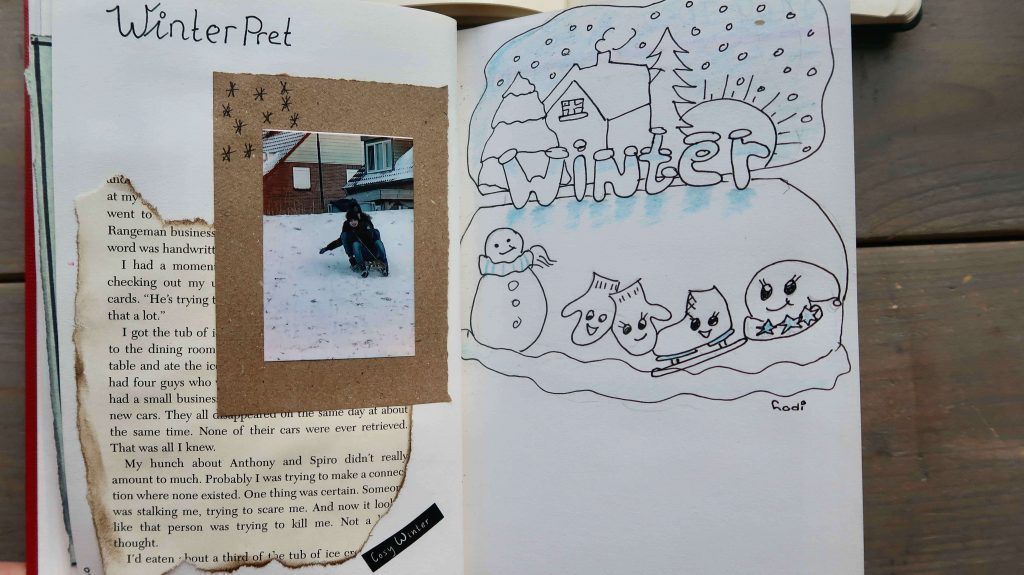 Winter Pret
at my
went to
Rangeman business
word was handwritt
I had a momen
checking out my u
cards. “He’s trying t
that a lot.”
I got the tub of i
to the dining room
table and ate the ice
had four guys who
had a small busines
new cars. They all disappeared on the same day at about
the same time. None of their cars were ever retrieved.
That was all I knew.
My hunch about Anthony and Spiro didn’t really
amount to much. Probably I was trying to make a connec-
tion where none existed. One thing was certain. Someon
was stalking me, trying to scare me. And now it look
like that person was trying to kill me. Not a
thought.
I’d eaten about a third of the tub of ice cre
Cosy Winter
Winter
hodi